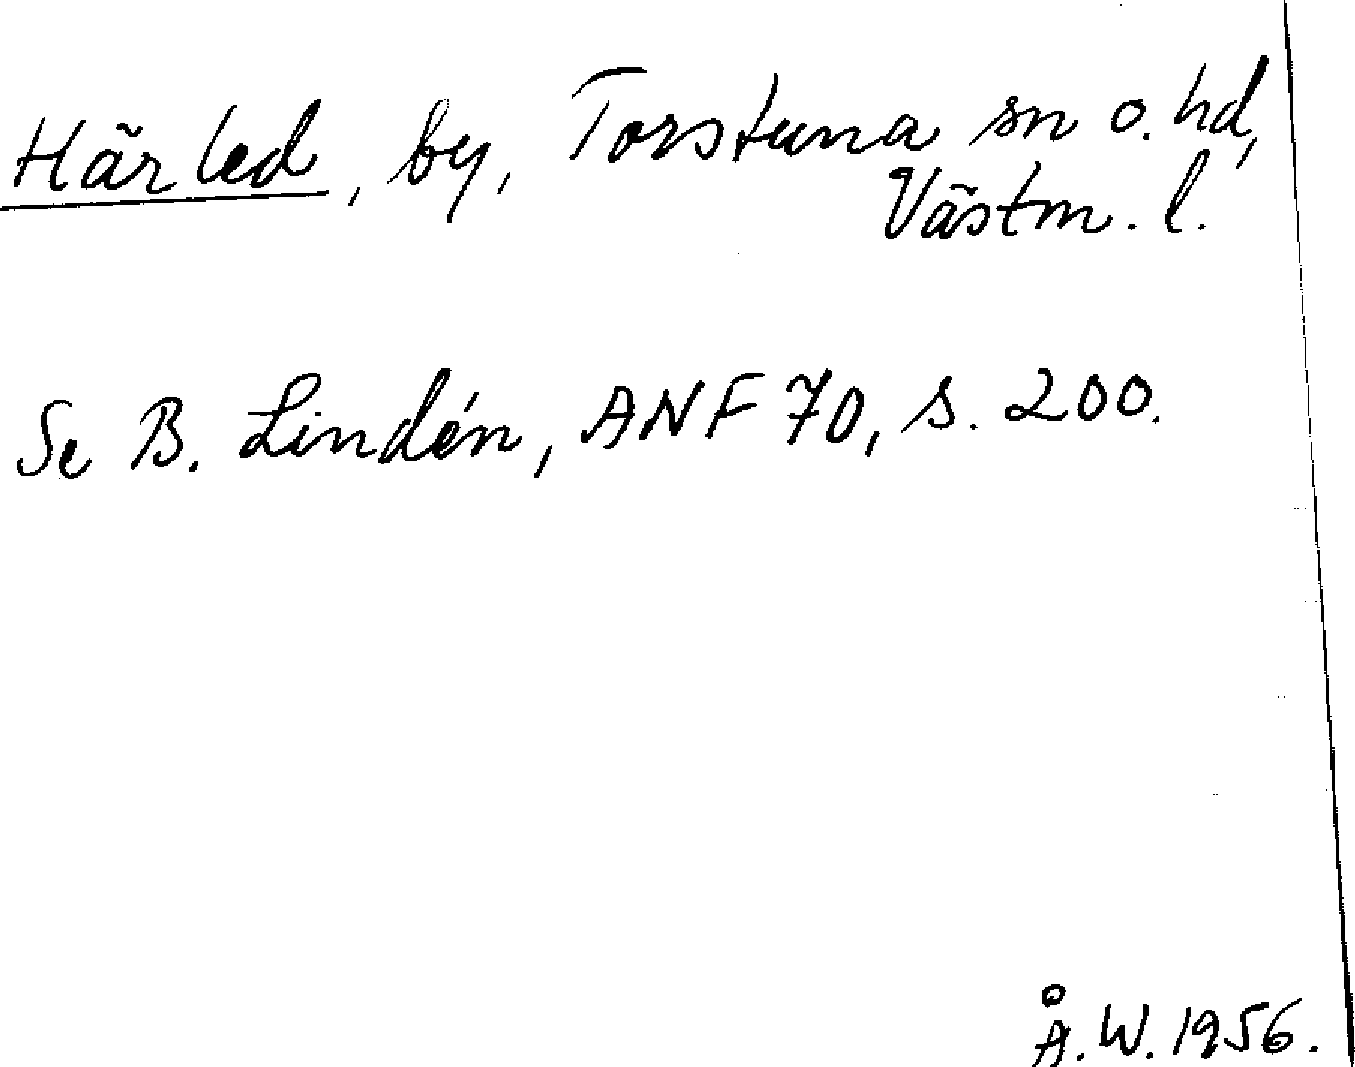 Härled, by, Torstuna sn o. hd,
Västm. l.
Se B. Lindén, ANF 70, s. 200.
Å. W. 1956.